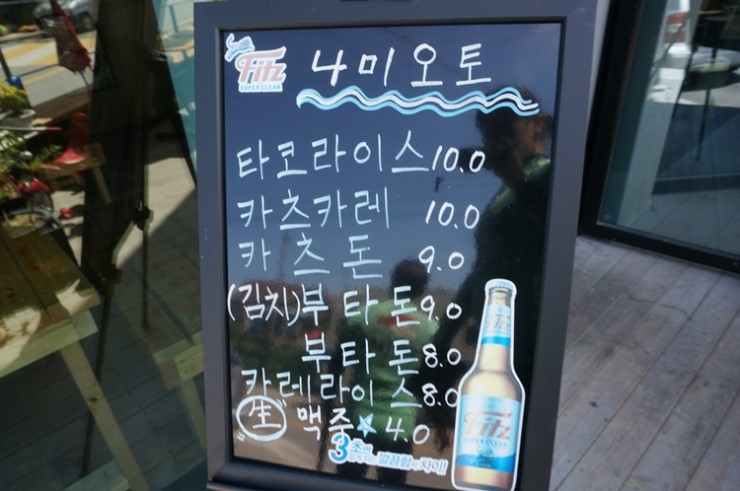 Fitz
SUPER CLEAR
나미오토
타코라이스 10.0
카츠카레 10.0
카츠돈 9.0
(김치)부타돈 9.0
부타돈 8.0
카레라이스 8.0
生 맥주 4.0
3초만
깔끔함의 차이!
Fitz
SUPER CLEAR